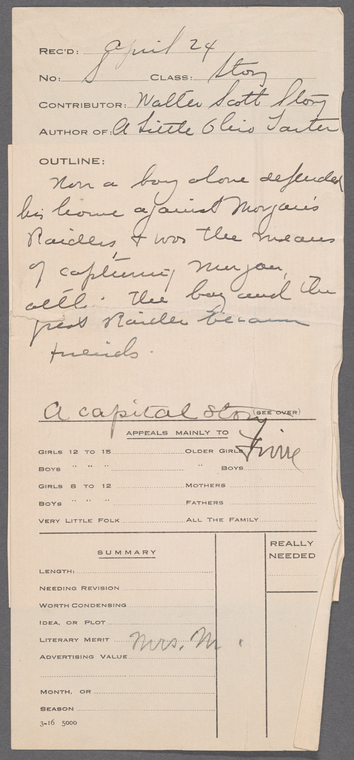 REC'D: April 24
No: CLASS: Story
CONTRIBUTOR: Walter Scott Story
AUTHOR OF: A Little Ohio Tartar
OUTLINE:
How a boy alone defended
his home against Morgan's
Raiders, & was the means
of capturing Morgan,
altho. the boy and the
great Raider became
friends.
A capital story (SEE OVER)
APPEALS MAINLY TO
Fine
GIRLS 12 TO 15 OLDER GIRLS
BOYS " " " " BOYS
GIRLS 8 TO 12 MOTHERS
BOYS " " " FATHERS
VERY LITTLE FOLK ALL THE FAMILY
SUMMARY
REALLY NEEDED
LENGTH:
NEEDING REVISION
WORTH CONDENSING
IDEA, OR PLOT
LITERARY MERIT Mrs. M.
ADVERTISING VALUE
MONTH, OR
SEASON
3-16 5000